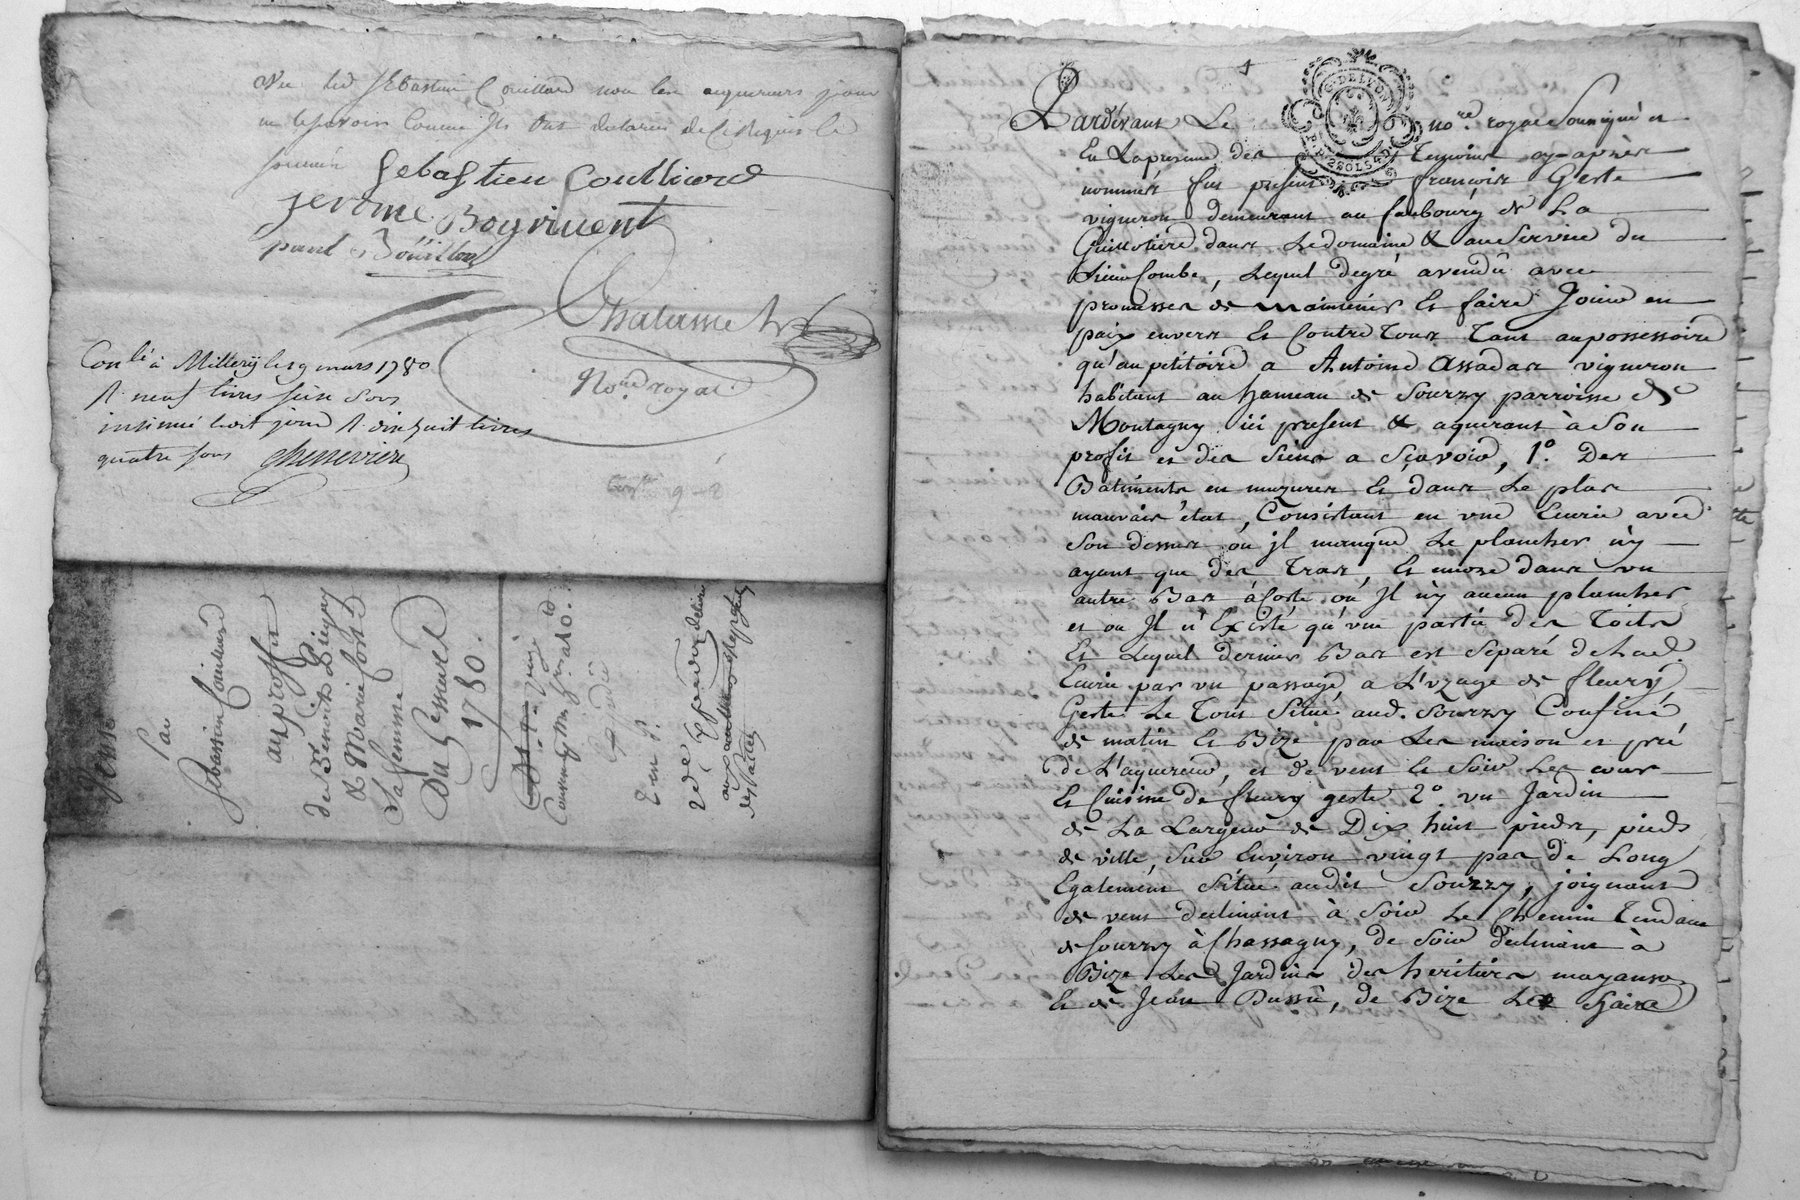 Sébastien Couilliard non les aquereurs pour
ne le savoir comme ils ont declarés de ce requis le
Sebastien Coulliard
Jerome Boyrivent
paul Bouillon
Chalamel
No.re royal
Con.lé à Millery le 9 mars 1780
R neuf livres seize sous
insinué led jour R dix huit livres
quatre sous Chenevier
Vente
Par
Sebastien Couilliard
au proffit
de Benoit
& Marie
sa femme
Du 1780.
G. DE LYON
Pardevant Le no.re royal soussigné et
En la presence des Temoins cy-après
nommés fut present françois Geste
vigneron demeurant au faubourg de La
Guillotiere dans le domaine & au service du
sieur Combe, lequel de gré a vendû avec
promesses de maintenir et faire Jouir en
paix envers et contre tous tant au possessoire
qu'au petitoire a Antoine Assadas vigneron
habitant au hameau de Sourzy parroisse de
Montagny ici present & aquerant à Son
profit et des siens a Sçavoir, 1.° Des
Batiments en mazures et dans le plus
mauvais état, Consistant en une Ecurie avec
Son dessus ou jl manque le plancher n'y
ayant que des Tras, et encore dans un
autre Bas à Coste où Jl n'y aucun plancher
et ou Jl n'Existe qu'une partie des Toits
Et lequel dernier Bas est Séparé de lad.
Ecurie par un passage a L'uzage de fleury
Geste Le Tout Situé aud. Sourzy Confiné
de matin et Bize par les maison et pré
de L'aquereur, et de vent et Soir les cour
Et Cuisine de fleury geste 2.° un Jardin
de La Largeur de Dix huit pieds, pieds
de ville, Sur Environ vingt pas de Long
Egalement Situé audit Sourzy, joignant
de vent declinant à Soir Le Chemin Tendant
de Sourzy à Chassagny, de Soir declinant à
Bize Les Jardins des heritiers mayanson
Et de Jean Dussu, de Bize Les